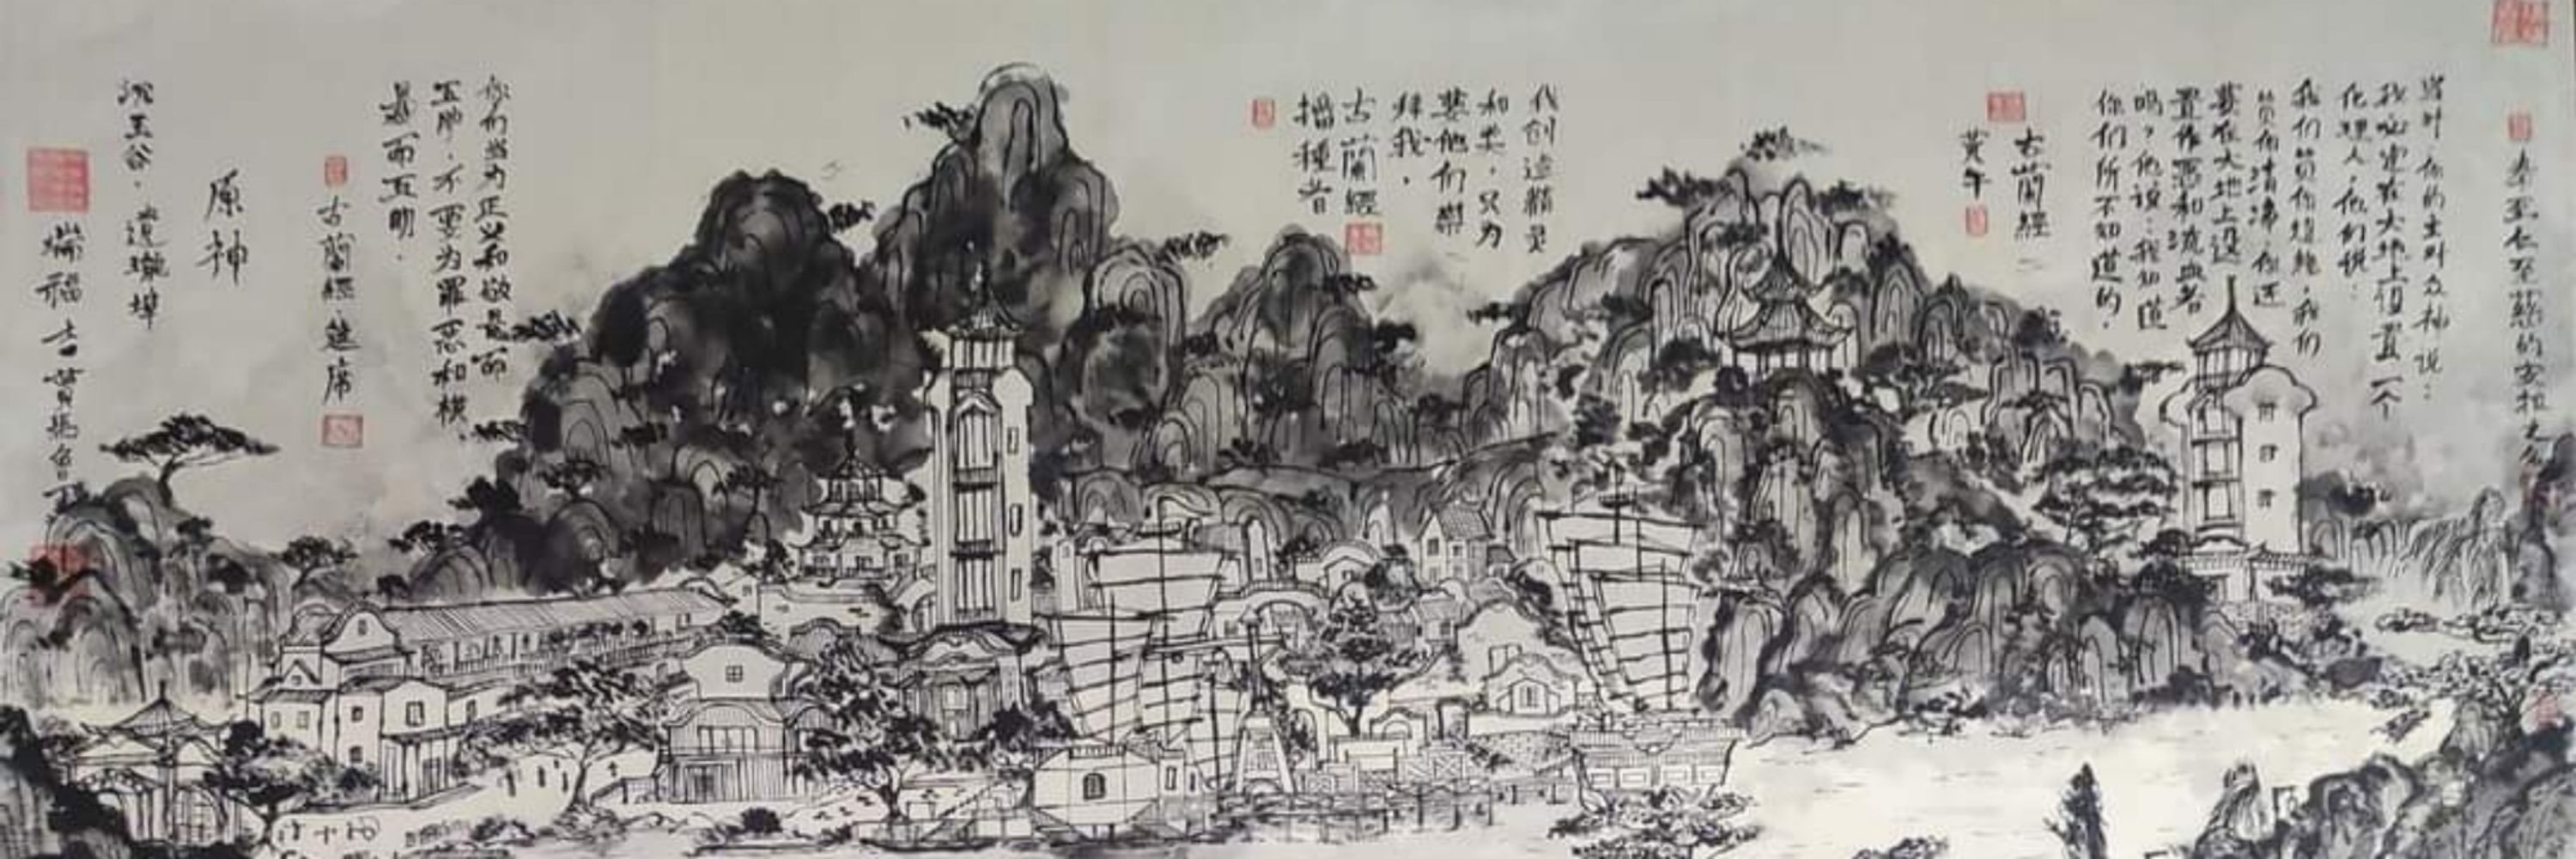 奉至仁至慈的安拉之名
当时,你的主对众神说:
我必定在大地上设置一个
代理人,他们说:
我们赞你超绝,我们
赞你清净,你还
要在大地上设
置作恶和流血者
吗?他说:我知道
你们所不知道的。
古蘭經
黄牛
我创造精灵
和人类,只为
要他们崇
拜我,
古蘭經
播種者
你们当为正义和敬畏而
互助,不要为罪恶和横
暴而互助。
古蘭經 筵席
原神
沉玉谷·遗瓏埠